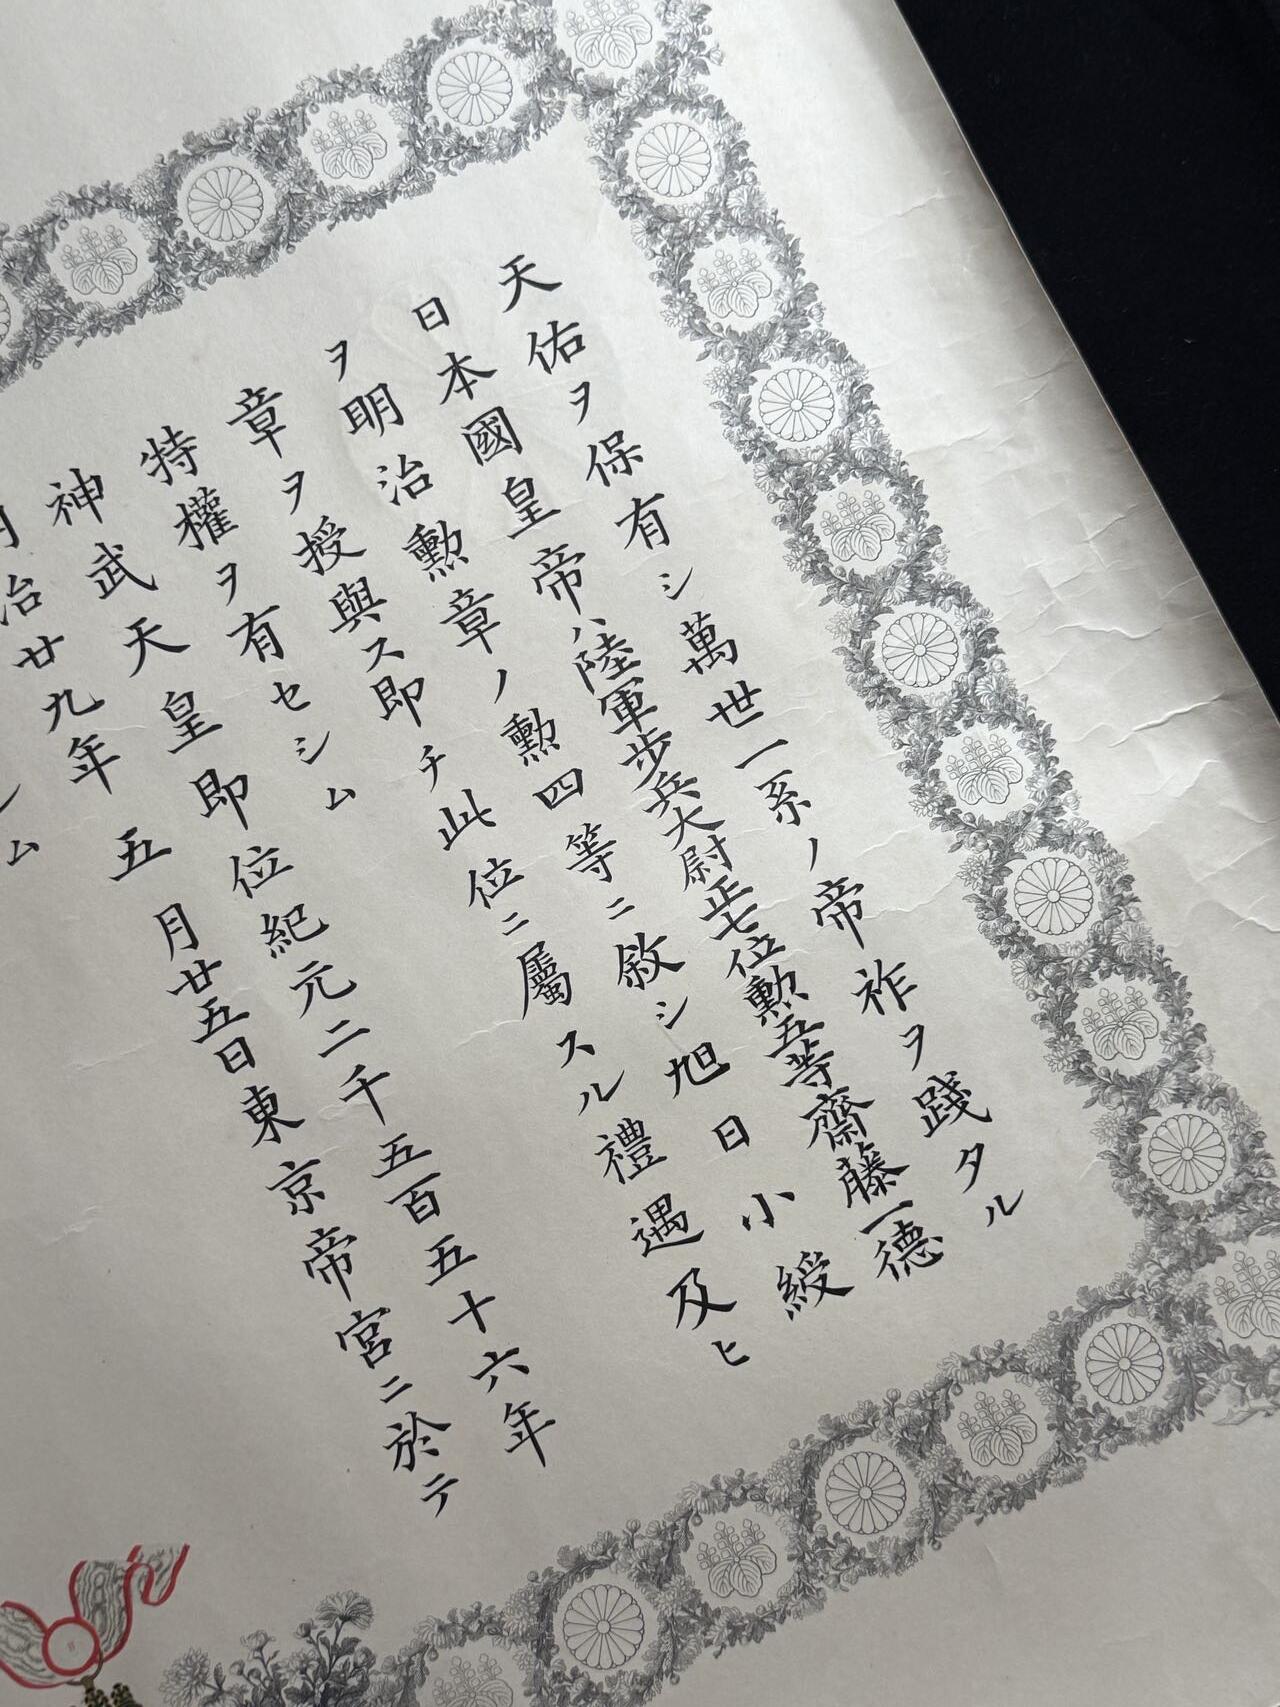 天佑ヲ保有シ萬世一系ノ帝祚ヲ踐タル
日本國皇帝ハ陸軍步兵大尉正七位勲五等齋藤一德
ヲ明治勲章ノ勲四等ニ敘シ旭日小綬
章ヲ授與ス即チ此位ニ屬スル禮遇及ヒ
特權ヲ有セシム
神武天皇即位紀元二千五百五十六年
明治廿九年五月廿五日東京帝宮ニ於テ
シム